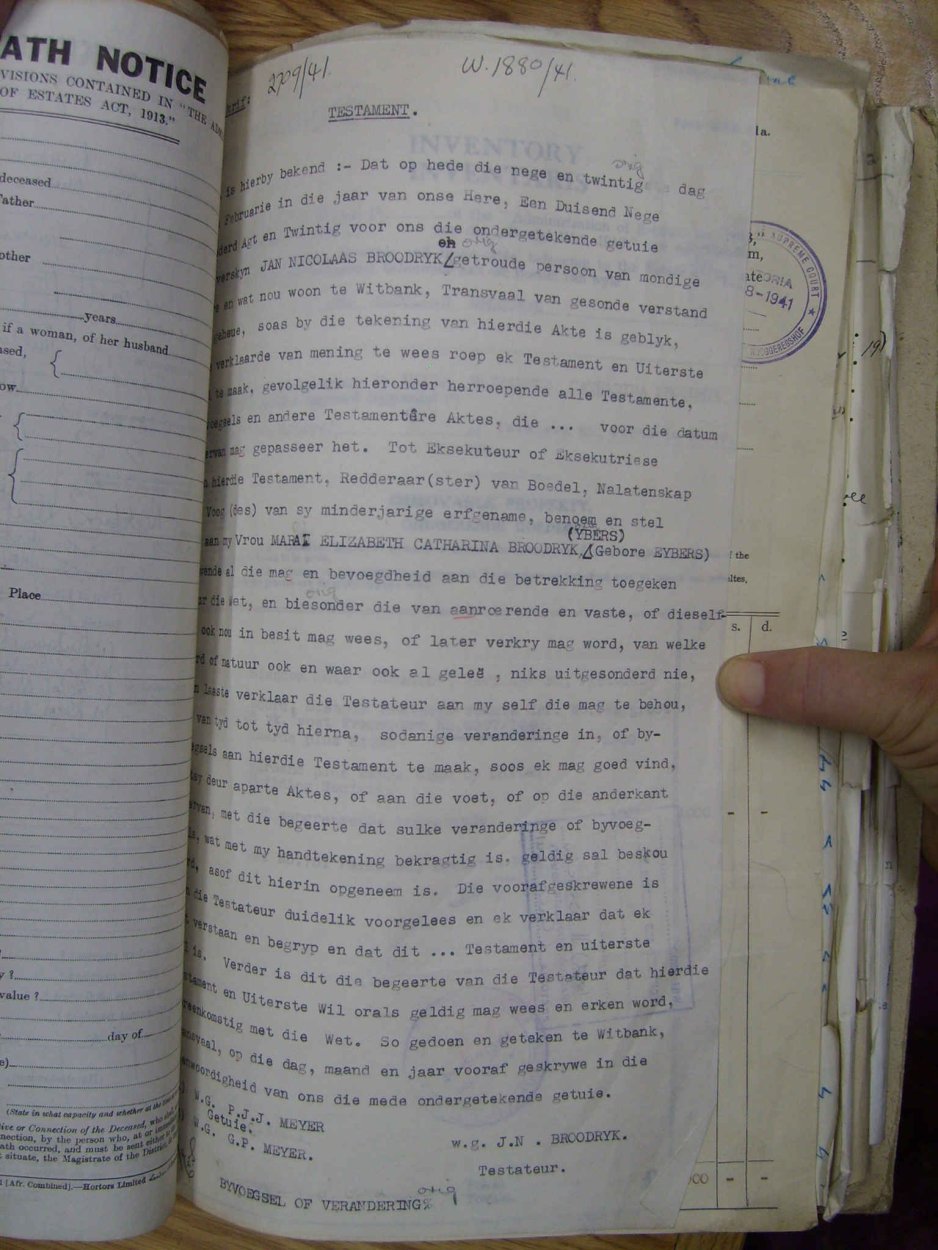 ATH NOTICE
VISIONS CONTAINED IN "THE
OF ESTATES ACT, 1913."
deceased
ather
other
years
if a woman, of her husband
Place
value ?
day of
(State in what capacity and whether at the
ive or Connection of the Deceased, who
nnection, by the person who, at or
ath occurred, and must be sent either
t situate, the Magistrate of the
[Afr. Combined].—Hortors Limited
2709/41.
W. 1880/41.
TESTAMENT.
is hierby bekend :- Dat op hede die nege en twintig dag
Februarie in die jaar van onse Here, Een Duisend Nege
derd Agt en Twintig voor ons die ondergetekende getuie
en orig
verskyn JAN NICOLAAS BROODRYK/getroude persoon van mondige
e en wat nou woon te Witbank, Transvaal van gesonde verstand
geheue, soas by die tekening van hierdie Akte is geblyk,
verklaarde van mening te wees roep ek Testament en Uiterste
te maak, gevolgelik hieronder herroepende alle Testamente,
oegsels en andere Testamentêre Aktes, die ... voor die datum
ervan mag gepasseer het. Tot Eksekuteur of Eksekutriese
hierdie Testament, Redderaar(ster) van Boedel, Nalatenskap
Voog(des) van sy minderjarige erfgename, benoem en stel
(YBERS)
aan my Vrou MARAI ELIZABETH CATHARINA BROODRYK,/(Gebore EYBERS)
wende al die mag en bevoegdheid aan die betrekking toegeken
ur die Wet, en biesonder die van aanroerende en vaste, of dieself-
ook nou in besit mag wees, of later verkry mag word, van welke
rd of natuur ook en waar ook al geleë , niks uitgesonderd nie,
n laaste verklaar die Testateur aan my self die mag te behou,
van tyd tot tyd hierna, sodanige veranderinge in, of by-
egsels aan hierdie Testament te maak, soos ek mag goed vind,
sy deur aparte Aktes, of aan die voet, of op die anderkant
ervan, met die begeerte dat sulke veranderinge of byvoeg-
s, wat met my handtekening bekragtig is. geldig sal beskou
rd, asof dit hierin opgeneem is. Die voorafgeskrewene is
n die Testateur duidelik voorgelees en ek verklaar dat ek
t verstaan en begryp en dat dit ... Testament en uiterste
l is. Verder is dit die begeerte van die Testateur dat hierdie
stament en Uiterste Wil orals geldig mag wees en erken word,
reenkomstig met die Wet. So gedoen en geteken te Witbank,
ansvaal, op die dag, maand en jaar vooraf geskrywe in die
enwoordigheid van ons die mede ondergetekende getuie.
W.G. P.J.J. MEYER
Getuie.
W.G. G.P. MEYER.
w.g. J.N . BROODRYK.
Testateur.
orig
BYVOEGSEL OF VERANDERING%
INVENTORY
SUPREME COURT
8-1941
HOOGGEREGSHOF
la.
s. d.